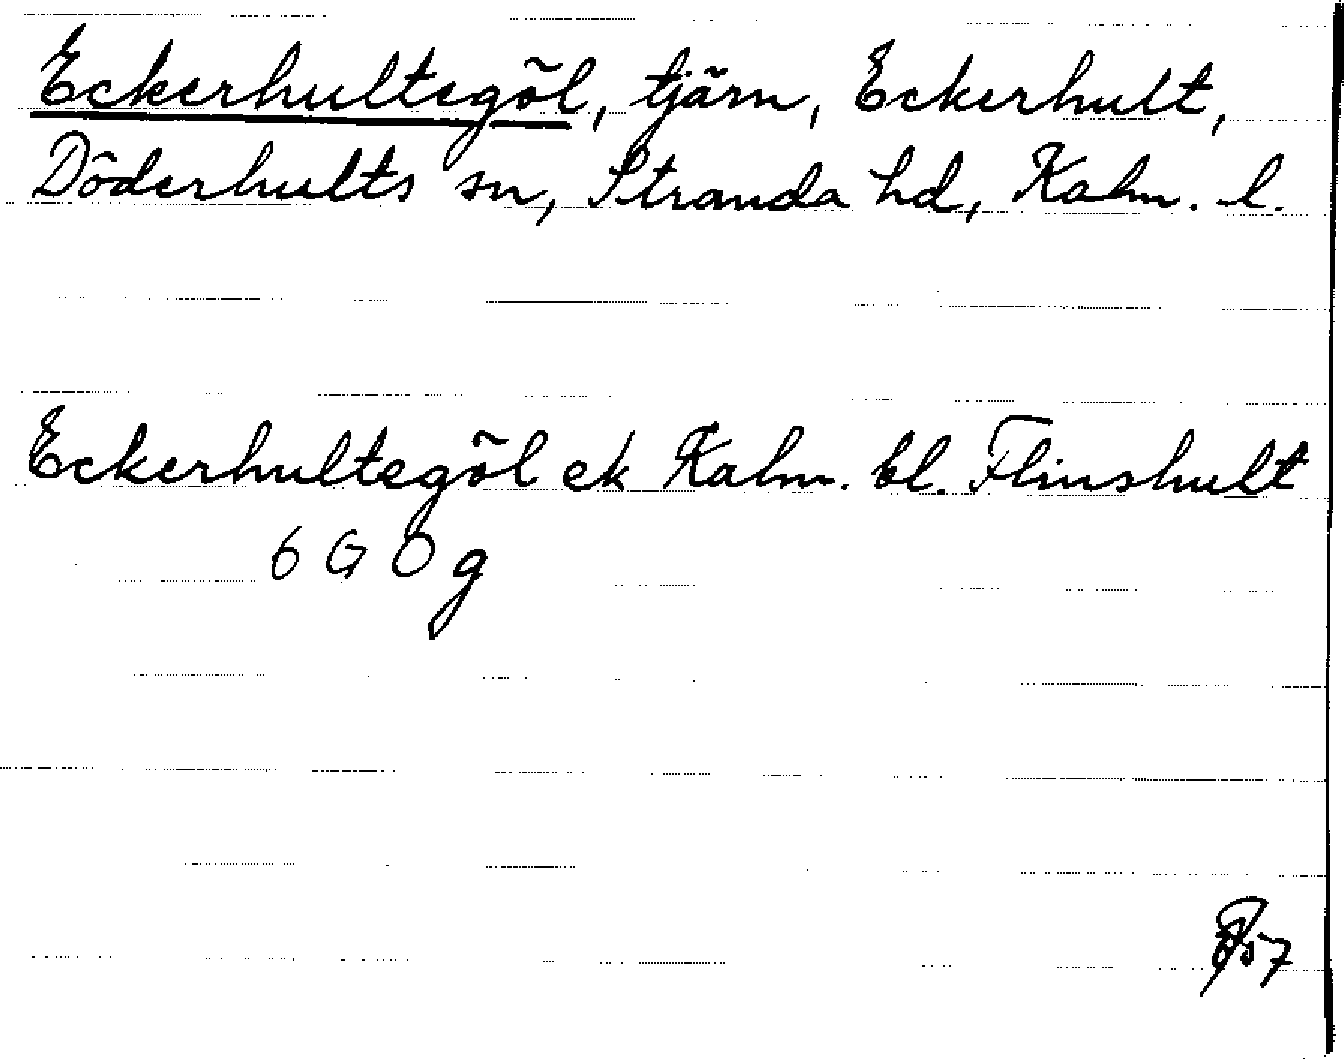 Eckerhultegöl, tjärn, Eckerhult,
Döderhults sn, Stranda hd, Kalm. l.
Eckerhultegöl ek Kalm. bl. Flinshult
6 G 0 g
57